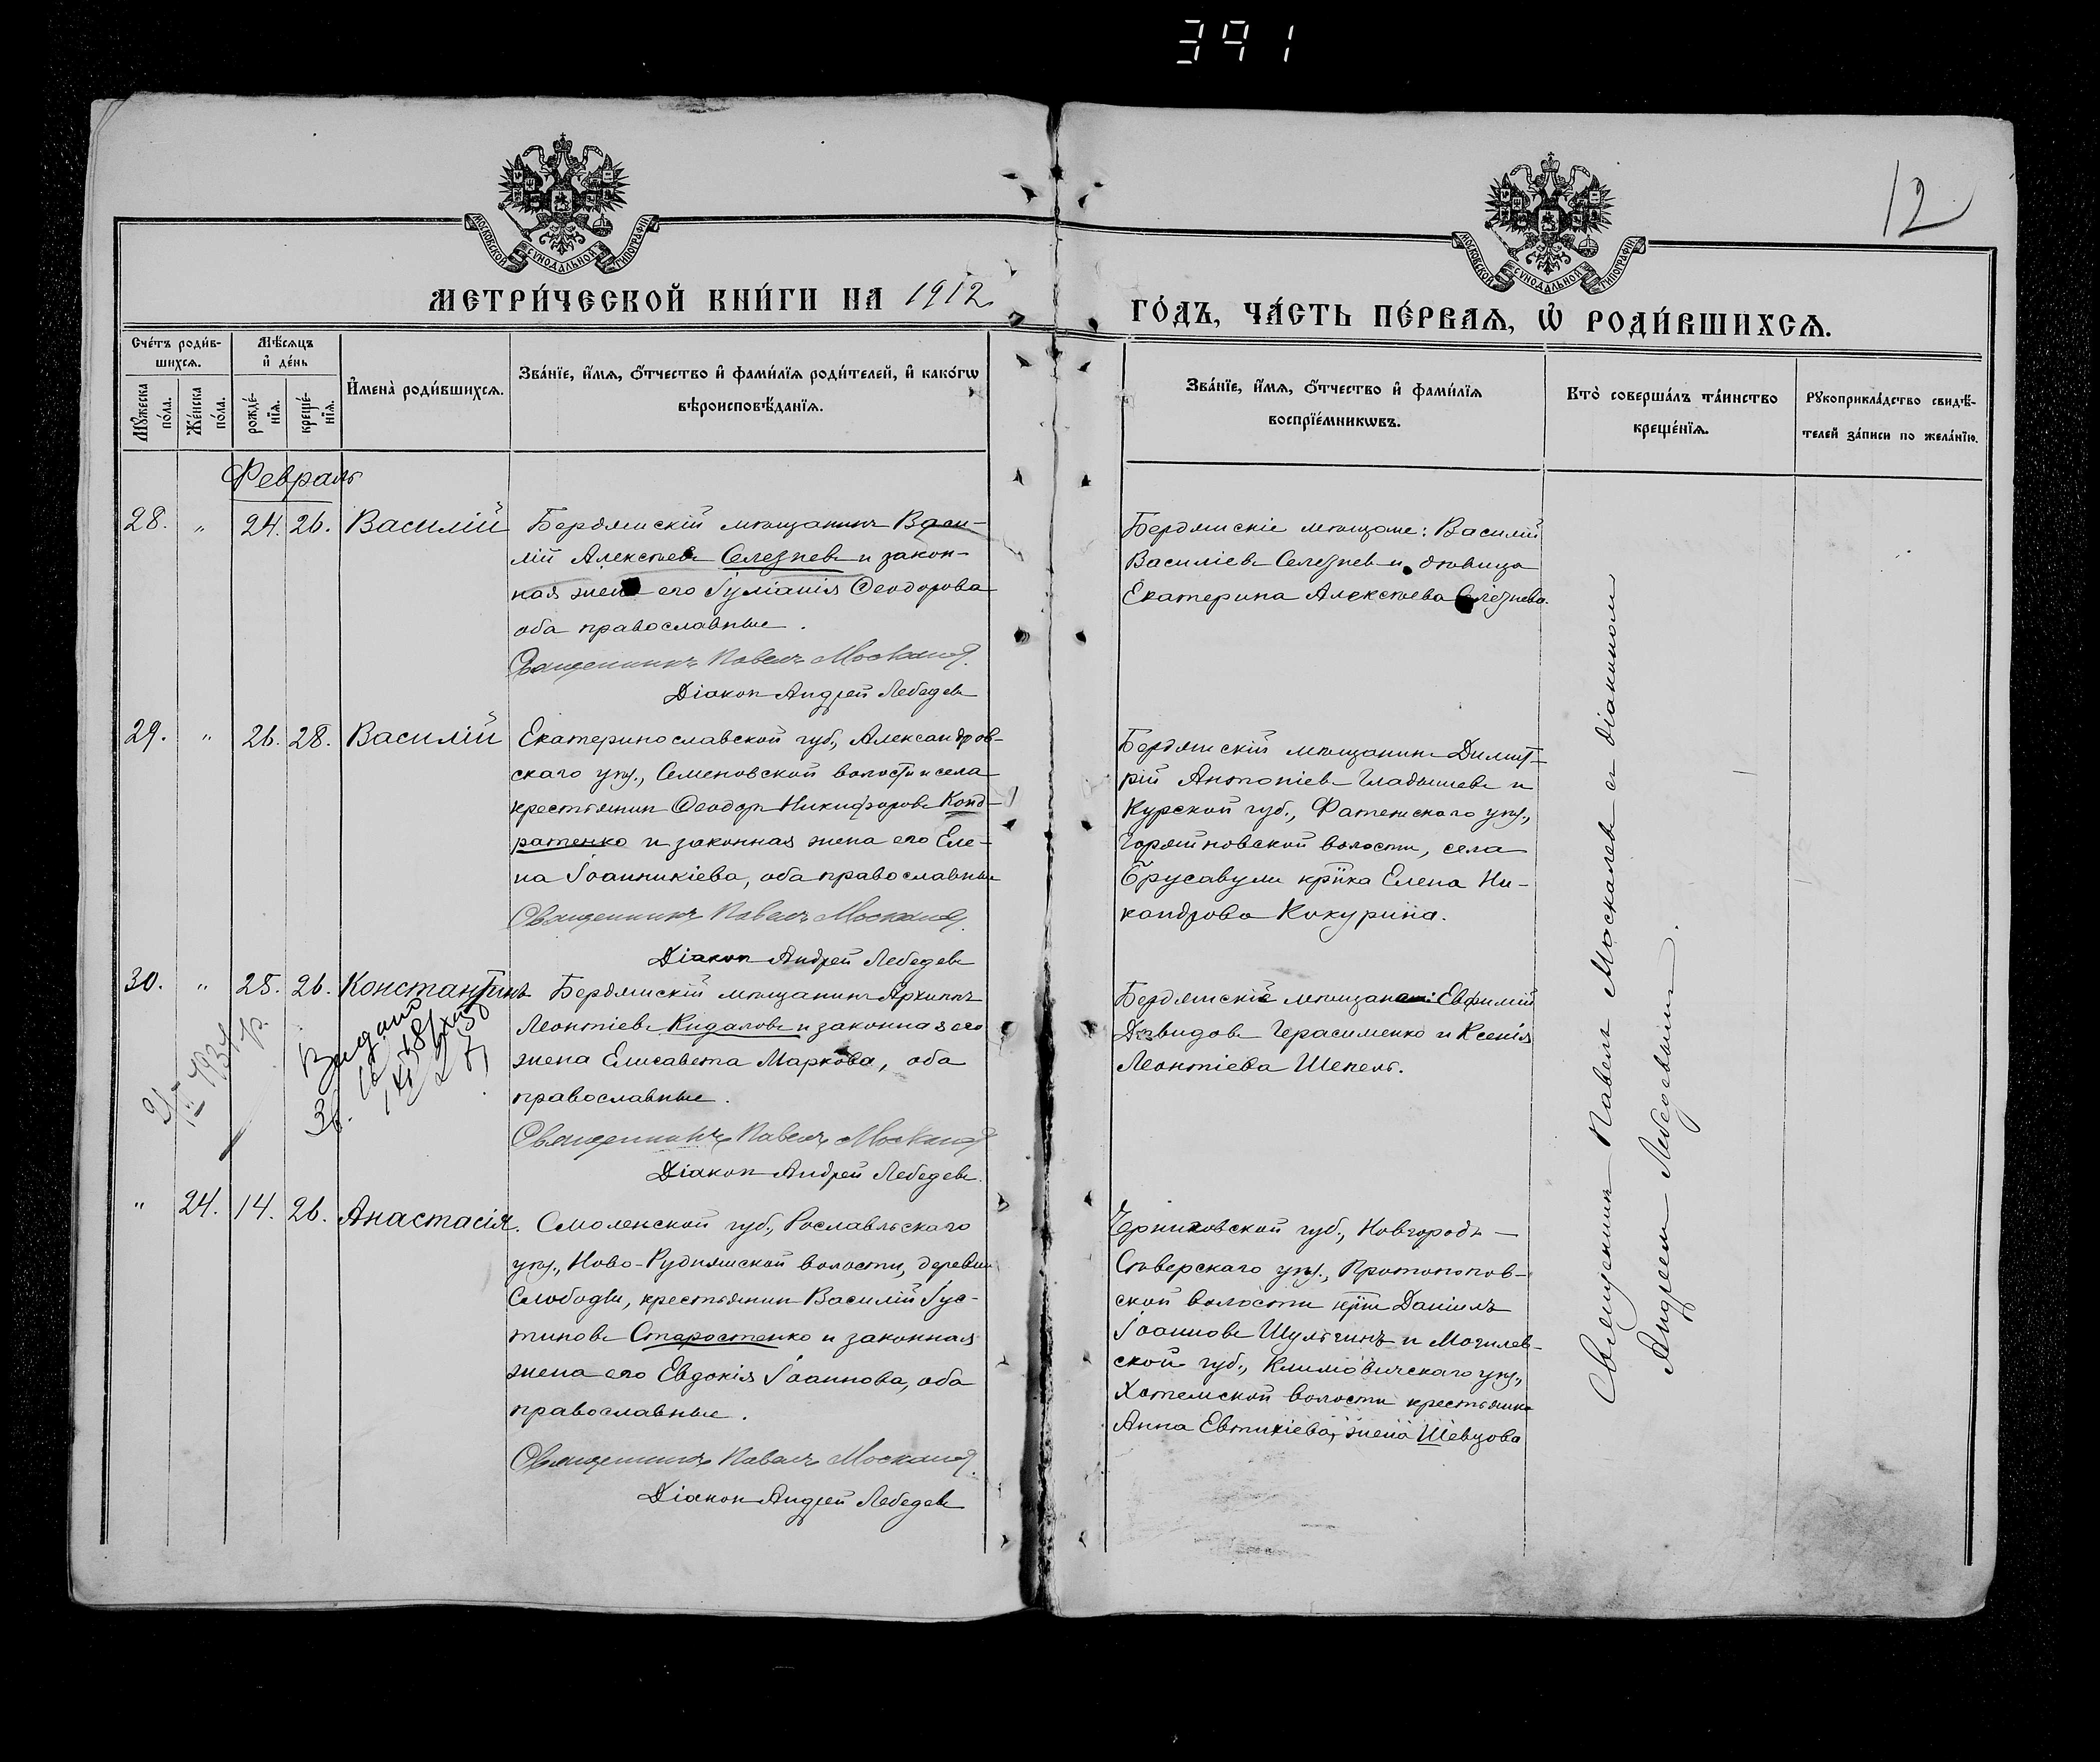 391
12
МОСКОВСКОЙ СѴНОДАЛЬНОЙ ТИПОГРАФІИ
МОСКОВСКОЙ СѴНОДАЛЬНОЙ ТИПОГРАФІИ
МЕТРИ́ЧЕСКОЙ КНИ́ГИ НА 1912
ГО́ДЪ, ЧА́СТЬ ПЕ́РВАѦ, Ѡ҆ РОДИ́ВШИХСѦ.
Сче́тъ роди́в-
шихсѧ.
Мѣ́сѧцъ
и҆ де́нь
Мꙋ́жеска
по́ла.
Же́нска
по́ла.
рожде́-
нїѧ.
креще́-
нїѧ.
И҆мена̀ роди́вшихсѧ.
Зва́нїе, и҆́мѧ, ѻ҆́тчество и҆ фами́лїѧ роди́телей, и҆ како́гѡ
вѣроисповѣ́данїѧ.
Зва́нїе, и҆́мѧ, ѻ҆́тчество и҆ фами́лїѧ
воспрїе́мникѡвъ.
Кто̀ соверша́лъ та́инство
креще́нїѧ.
Рꙋкоприкла́дство свидѣ́-
телей за́писи по жела́нїю.
Февраль
28. " 24. 26. Василій
Бердянскій мѣщанинъ Васи-
лій Алексѣевъ Селезневъ и закон-
ная жена его Іуліанія Ѳеодорова
оба православные.
Священникъ Павелъ Москалевъ
Діаконъ Андрей Лебедевъ
Бердянскіе мѣщане: Василій
Василіевъ Селезневъ и дѣвица
Екатерина Алексѣева Селезнева.
29. " 26. 28. Василій
Екатеринославской губ., Александров-
скаго уѣз., Семеновской волости и села
крестьянинъ Ѳеодоръ Никифоровъ Конд-
ратенко и законная жена его Еле-
на Іоанникіева, оба православные
Священникъ Павелъ Москалевъ
Діаконъ Андрей Лебедевъ
Бердянскій мѣщанинъ Димит-
рій Антоніевъ Гладышевъ и
Курской губ., Фатежскаго уѣз.,
села
кр҃нка Елена Ни-
кандрова Кокурина.
30. " 25. 26. Константинъ
Бердянскій мѣщанинъ Архипъ
Леонтіевъ Кидаловъ и законная его
жена Елисавета Маркова, оба
православные.
Священникъ Павелъ Москалевъ
Діаконъ Андрей Лебедевъ
Бердянскіе мѣщане: Евфимій
Давидовъ Герасименко и Ксенія
Леонтіева Шепель.
1934 р.
Видано
" 24. 14. 26. Анастасія.
Смоленской губ., Рославльскаго
уѣз., Ново-Руднянской волости, деревни
Слободы, крестьянинъ Василій Іус-
тиновъ Старостенко и законная
жена его Евдокія Іоаннова, оба
православные.
Священникъ Павелъ Москалевъ
Діаконъ Андрей Лебедевъ
Черниговской губ., Новгородъ-
Сѣверскаго уѣз., Протопопов-
ской волости кр҃нинъ Даніилъ
Іоанновъ Шульгинъ и Могилев-
ской губ., Климовичскаго уѣз.,
Хотимской волости крестьянка
Анна Евтихіева, жена Шевцова
Священникъ Павелъ Москалевъ съ діакономъ
Андреемъ Лебедевымъ.